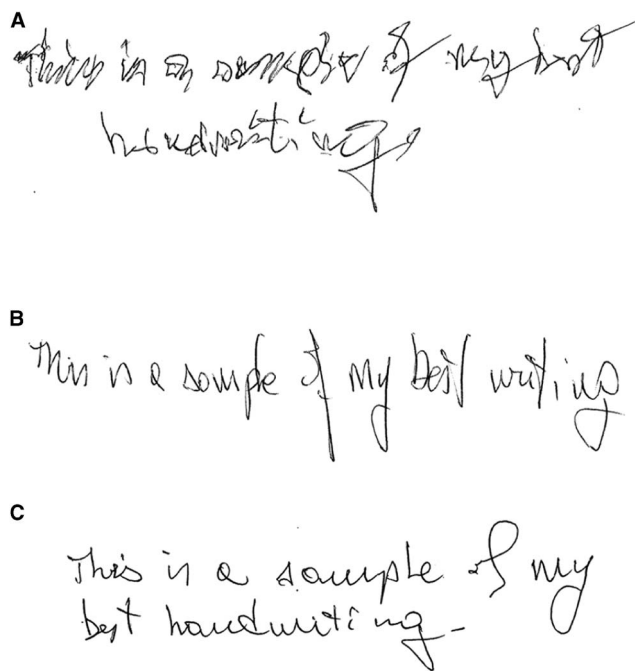 A
This is a sample of my best
handwriting
B
This is a sample of my best writing
C
This is a sample of my
best handwriting.